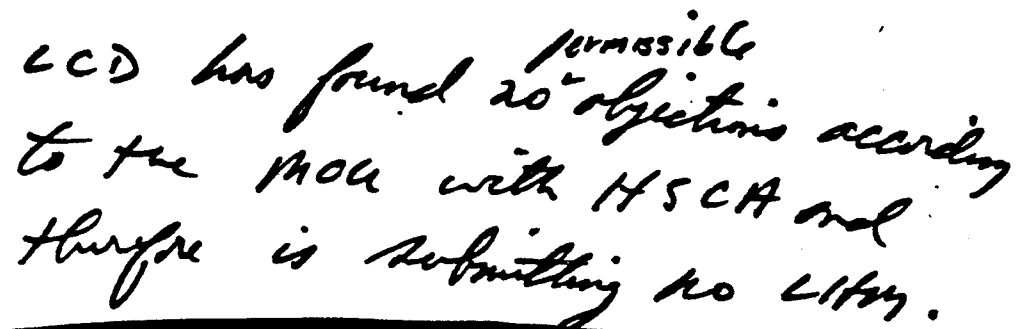 LCD has found no permissible objections according
to the MOU with HSCA and
therefore is submitting no